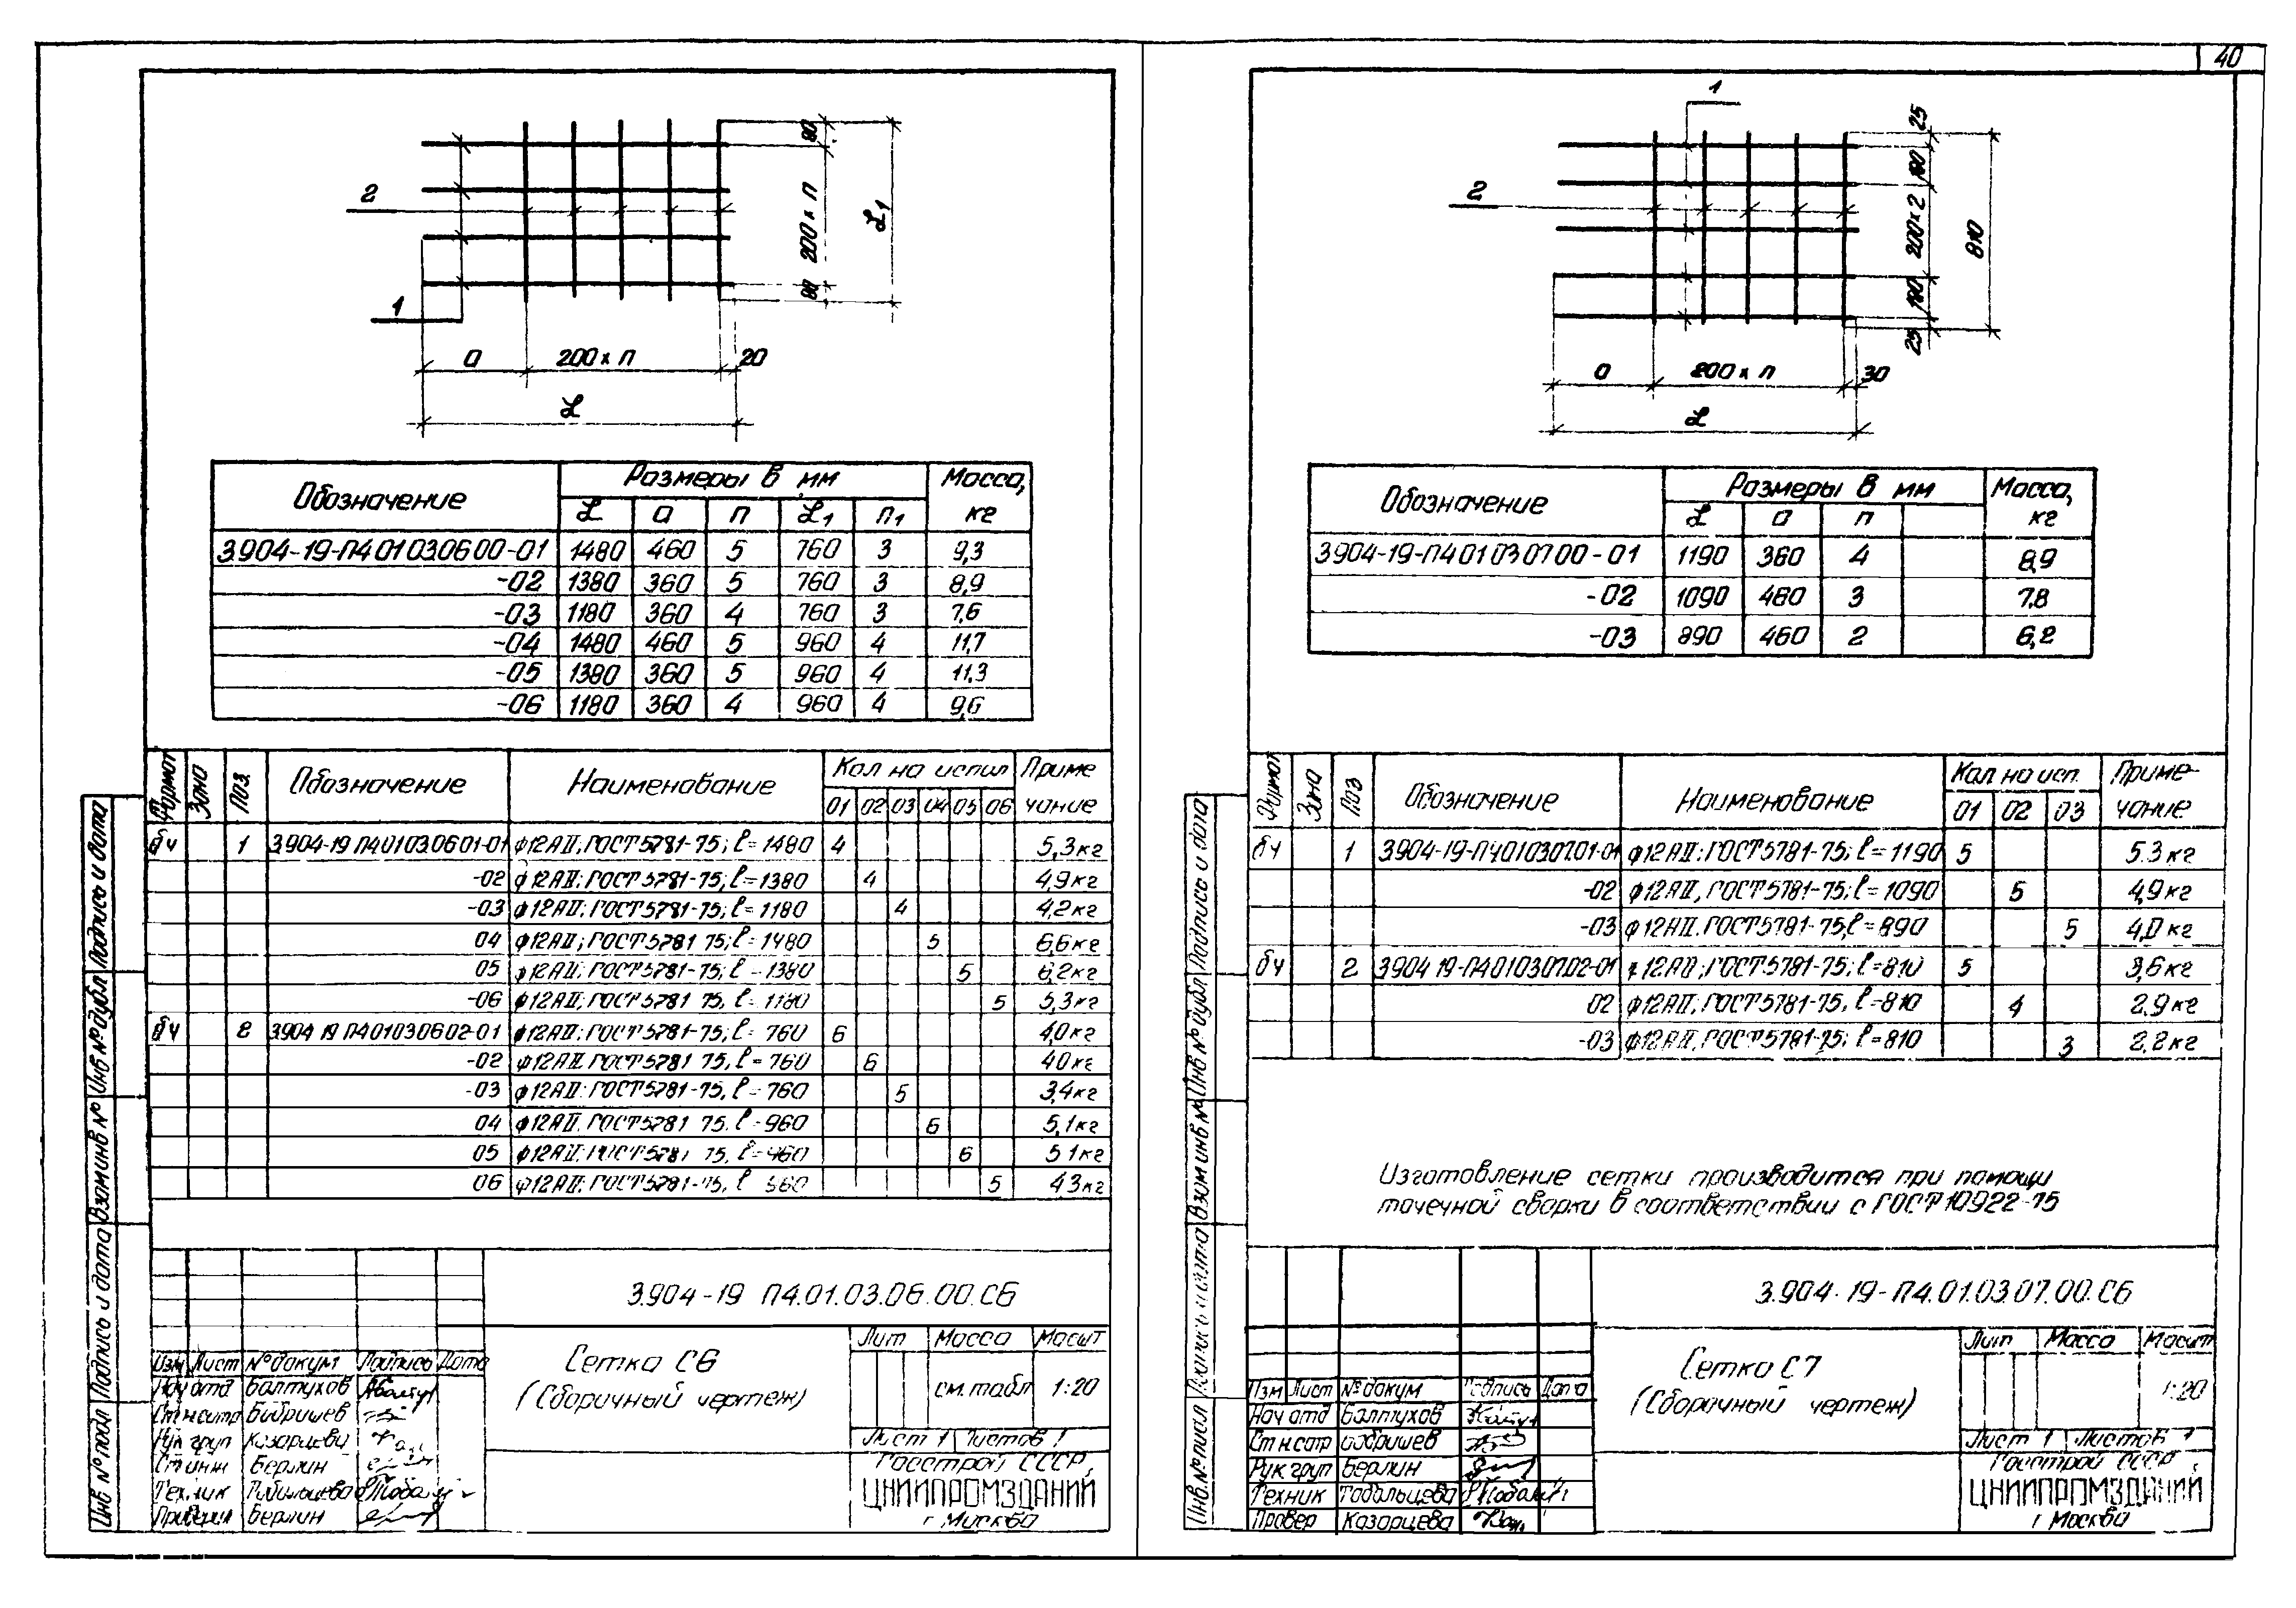 40
80
200 х п
80
L₁
2
1
а
200 х п
20
L
Обозначение Размеры в мм Масса, кг
L а п L₁ п₁
3.904-19-П4.01.03.06.00-01 1480 460 5 760 3 9,3
-02 1380 360 5 760 3 8,9
-03 1180 360 4 760 3 7,6
-04 1480 460 5 960 4 11,7
-05 1380 360 5 960 4 11,3
-06 1180 360 4 960 4 9,6
Формат Зона Поз. Обозначение Наименование Кол на испил Приме чание
01 02 03 04 05 06
бч 1 3.904-19 П4.01.03.06.01-01 ф12АII; ГОСТ 5781-75; ℓ=1480 4 5,3кг
-02 ф12АII; ГОСТ 5781-75; ℓ=1380 4 4,9кг
-03 ф12АII; ГОСТ 5781-75; ℓ=1180 4 4,2кг
04 ф12АII; ГОСТ 5781 75; ℓ=1480 5 6,6кг
05 ф12АII; ГОСТ 5781-75; ℓ=1380 5 6,2кг
-06 ф12АII; ГОСТ 5781 75, ℓ=1180 5 5,3кг
бч 2 3.904 19 П4.01.03.06.02-01 ф12АII; ГОСТ 5781-75; ℓ=760 6 4,0кг
-02 ф12АII ГОСТ 5781 75, ℓ=760 6 40кг
-03 ф12АII: ГОСТ 5781-75, ℓ=760 5 3,4кг
04 ф12АII; ГОСТ 5781 75, ℓ=960 6 5,1кг
05 ф12АII; ГОСТ 5781 75, 6 5 1кг
06 ф12АII; ГОСТ 5781-75, 5 43кг
3.904-19 П4.01.03.06.00.СБ
Сетка С6
(Сборочный чертеж)
Лит Масса Масшт
см.табл 1:20
Лист 1 Листов 1
Госстрой СССР,
ЦНИИПРОМЗДАНИЙ
г Москва
Изм Лист № докум Подпись Дата
Нач отд Балтухов
Ст н сотр Бодришев
Рук груп Казарцева
Ст инж Берлин
Техник Тобольцева
Проверил Берлин
Инв № подл Подпись и дата Взам инв № Инв № дубл Подпись и дата
1
2
25
180
200 х 2
180
25
810
а
200 х п
30
L
Обозначение Размеры в мм Масса, кг
L а п
3.904-19-П4.01.03.07.00-01 1190 360 4 8,9
-02 1090 460 3 7,8
-03 890 460 2 6,2
Формат Зона Поз Обозначение Наименование Кол на исп. Приме- чание
01 02 03
бч 1 3.904-19-П4.01.03.07.01-01 ф12АII; ГОСТ 5781-75; ℓ=1190 5 5.3кг
-02 ф12АII, ГОСТ 5781-75; ℓ=1090 5 4,9кг
-03 ф12АII, ГОСТ 5781-75, ℓ=890 5 4,0 кг
бч 2 3.904 19-П4.01.03.07.02-01 ф12АII; ГОСТ 5781-75; ℓ=810 5 3,6кг
02 ф12АII; ГОСТ 5781-75, ℓ=810 4 2.9кг
-03 ф12АII, ГОСТ 5781-75; ℓ=810 3 2,2кг
Изготовление сетки производится при помощи
точечной сварки в соответствии с ГОСТ 10922-75
3.904-19-П4.01.03.07.00.СБ
Сетка С7
(Сборочный чертеж)
Лит Масса Масшт
1:20
Лист 1 Листов 1
Госстрой СССР
ЦНИИПРОМЗДАНИЙ
г Москва
Изм Лист № докум Подпись Дата
Нач отд Балтухов
Ст н сотр Бодришев
Рук груп Берлин
Техник Тобольцева
Провер Казарцева
Инв. № подл Подпись и дата Взам инв № Инв № дубл Подпись и дата